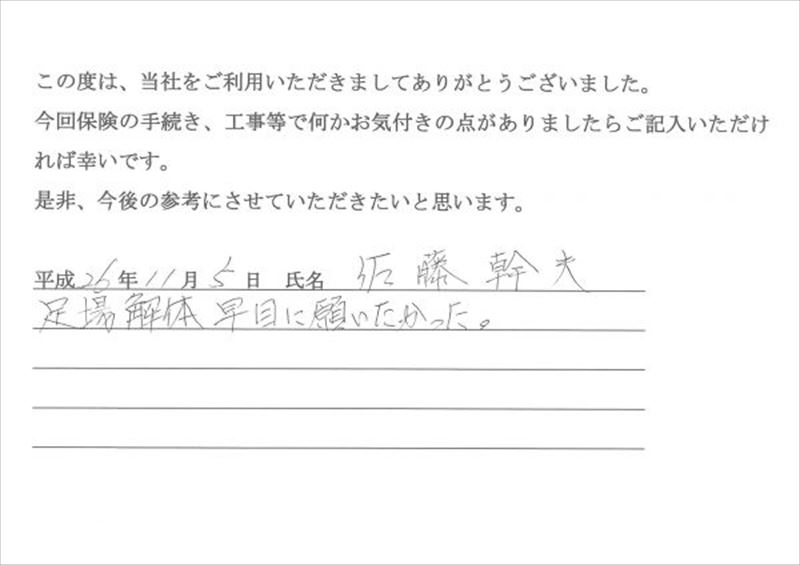 この度は、当社をご利用いただきましてありがとうございました。
今回保険の手続き、工事等で何かお気付きの点がありましたらご記入いただけ
れば幸いです。
是非、今後の参考にさせていただきたいと思います。
平成26年11月5日 氏名 佐藤幹夫
足場解体早目に願いたかった。